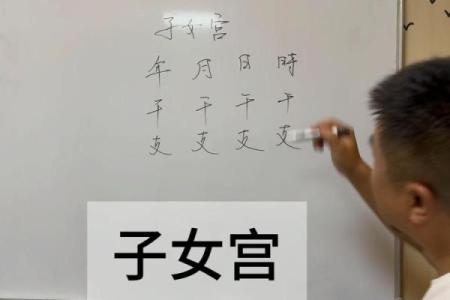 子女宫
年 月 日 時
干 干 干 干
支 支 支 支
子女宫